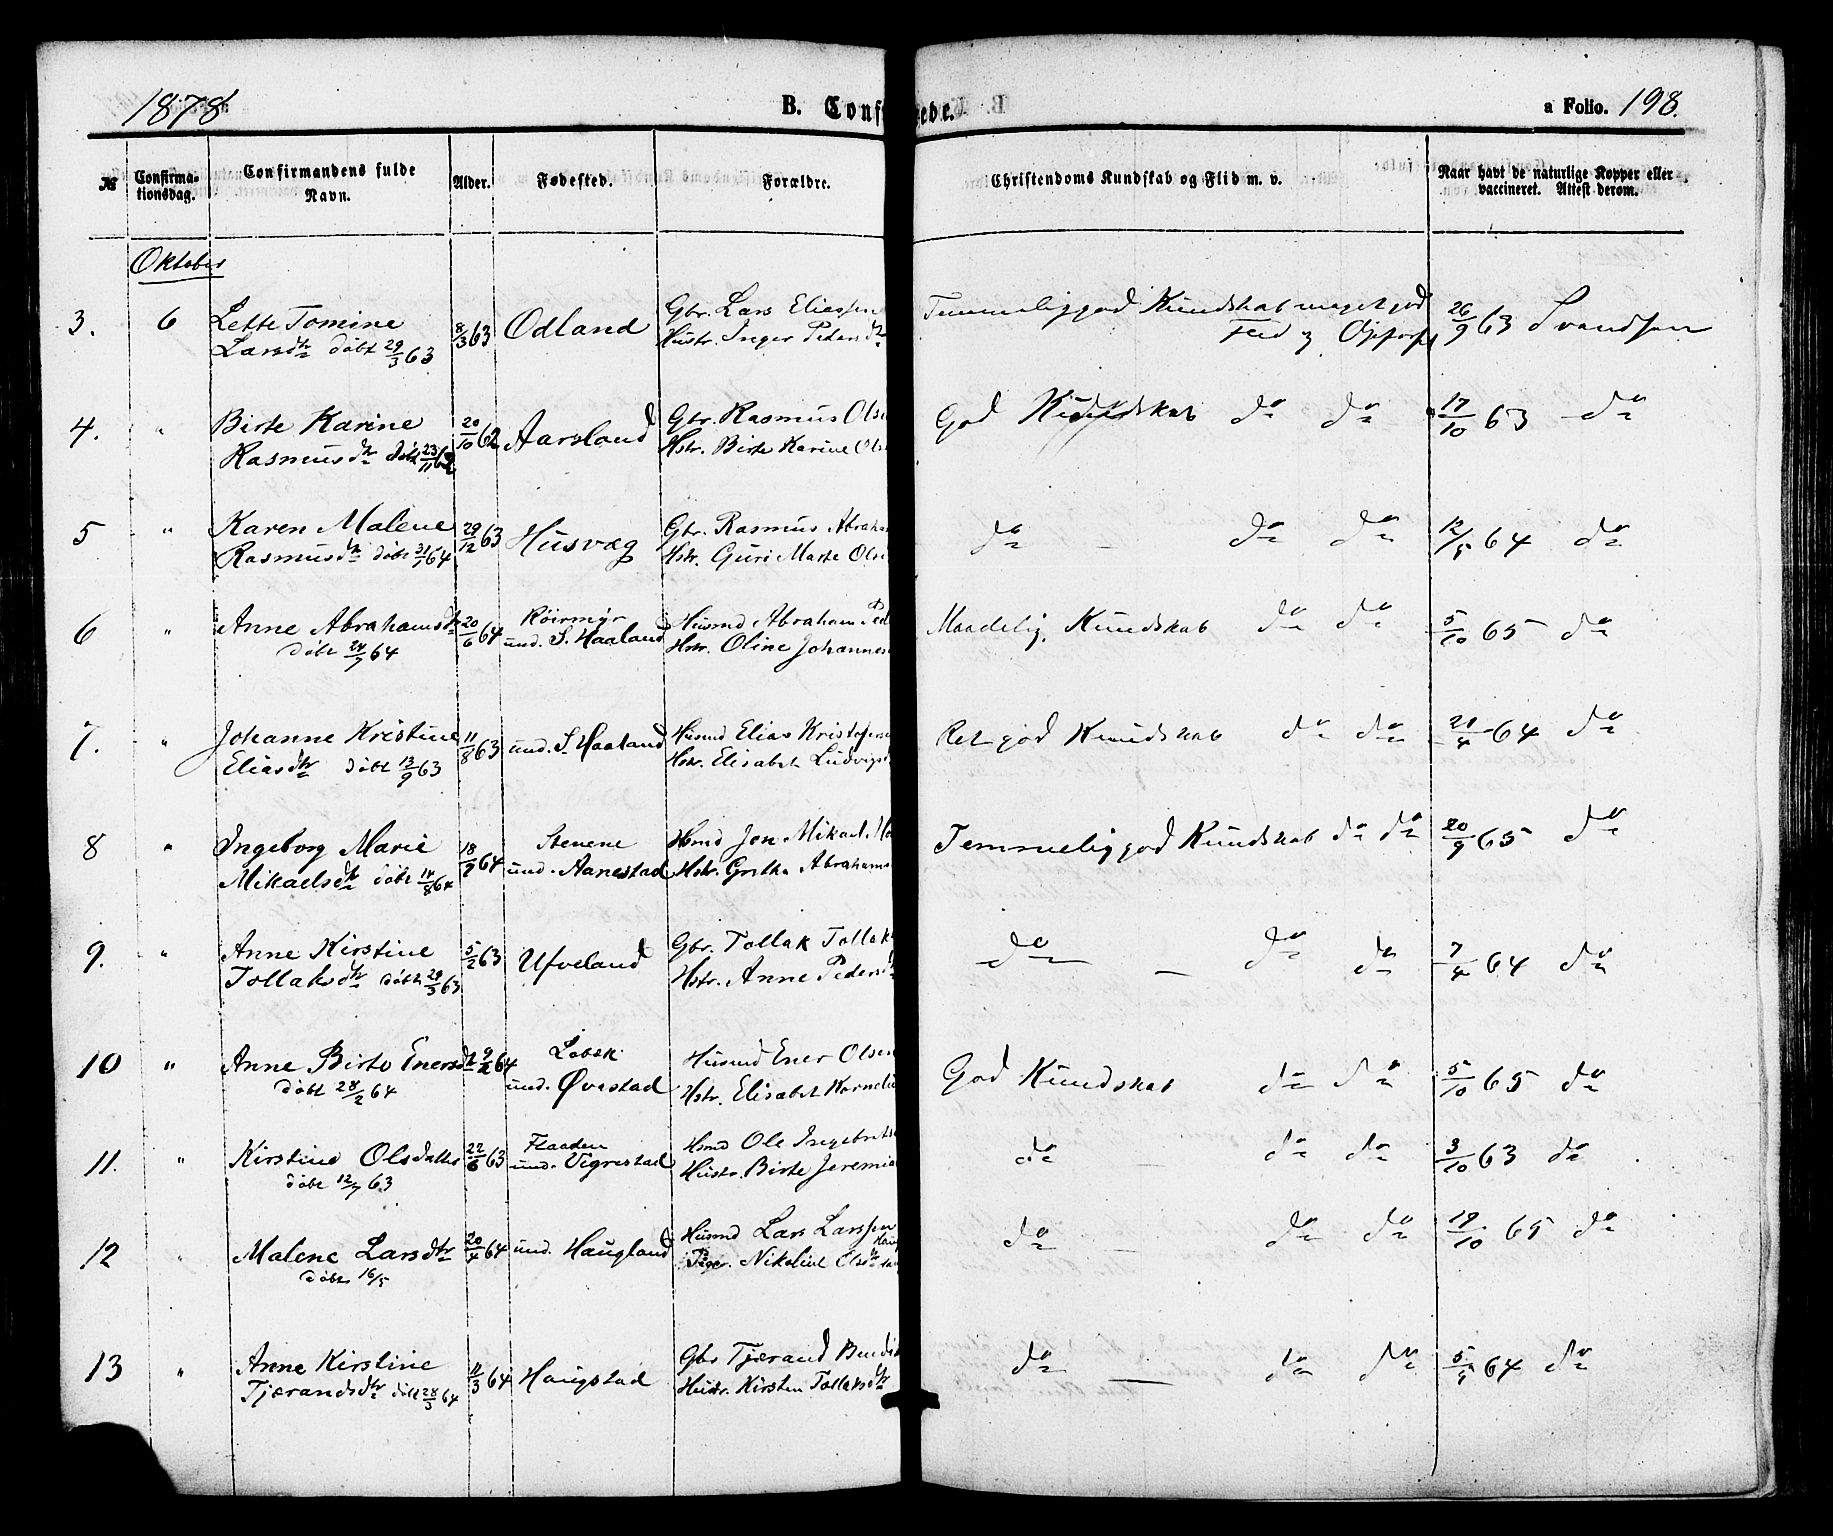 1878
B. Conf
gede.
a Folio. 198.
№ Confirma-
tionsdag.
Confirmandens fulde
Navn.
Alder.
Fødested.
Forældre.
Christendoms Kundskab og Flid m. v.
Naar havt de naturlige Kopper eller
vaccineret. Attest derom.
Oktober
3. 6 Lette Tomine 8/3 63 Odland Gbr. Lars Eliassen Temmelig god Kundskab meget god 26/9 63 Svendsen
Larsdtr døbt 29/3 63 Hustr. Inger Pedersdtr Flid og Opførs
4. " Birte Karine 20/10 62 Aarsland Gbr. Rasmus Olse God Kundskab do do 17/10 63 do
Rasmusdtr døbt 23/11 62 Hstr. Birte Karine Ols
5 " Karen Malene 29/12 63 Husvæg Gbr. Rasmus Abraha do - do do 12/5 64 do
Rasmusdtr døbt 31/1 64 Hstr. Guri Marte Ols
6 " Anne Abrahamsdtr 20/6 64 Røirmyr Husmd Abraham Ped Maadelig Kundskab do do 5/10 65 do
døbt 24/7 64 und. S. Haaland Hstr. Oline Johannes
7. " Johanne Kristine 11/8 63 und. S. Haaland Husmd Elias Kristofers Ret god Kundskab do do 21/4 64 do
Eliasdtr døbt 13/9 63 Hstr. Elisabet Ludvigs
8 " Ingeborg Marie 18/7 64 Stenene Hsmd Jon Mikael Temmelig god Kundskab do do 20/9 65 do
Mikaelsdtr døbt 14/8 64 und. Aanestad Hstr. Gretha Abrahams
9. " Anne Kirstine 5/2 63 Ufveland Gbr. Tollak Tollak do - do do 7/4 64 do
Tollaksdtr døbt 29/3 63 Hstr. Anne Pedersd
10 " Anne Birte Enersdtr 9/2 64 Husmd Ener Olsen God Kundskab do do 5/10 65 do
døbt 28/2 64 und. Øvestad Hstr. Elisabet Korneliu
11. " Kirstine Olsdatter 22/6 63 Flaaden Hsmd Ole Ingebrets do - do do 3/10 63 do
døbt 12/7 63 und. Vigrestad Hustr. Birte Jeremia
12 " Malene Larsdtr 20/4 64 und. Haugland Husmd Lars Larssen do - do do 19/10 65 do
døbt 16/5 Pige. Nikoline Olsdtr
13 " Anne Kirstine 11/3 64 Haugstad Gbr Tjærand Bendik do - do do 5/9 64 do
Tjærandsdtr døbt 28/3 64 Hustr. Kirsten Tollaksdtr